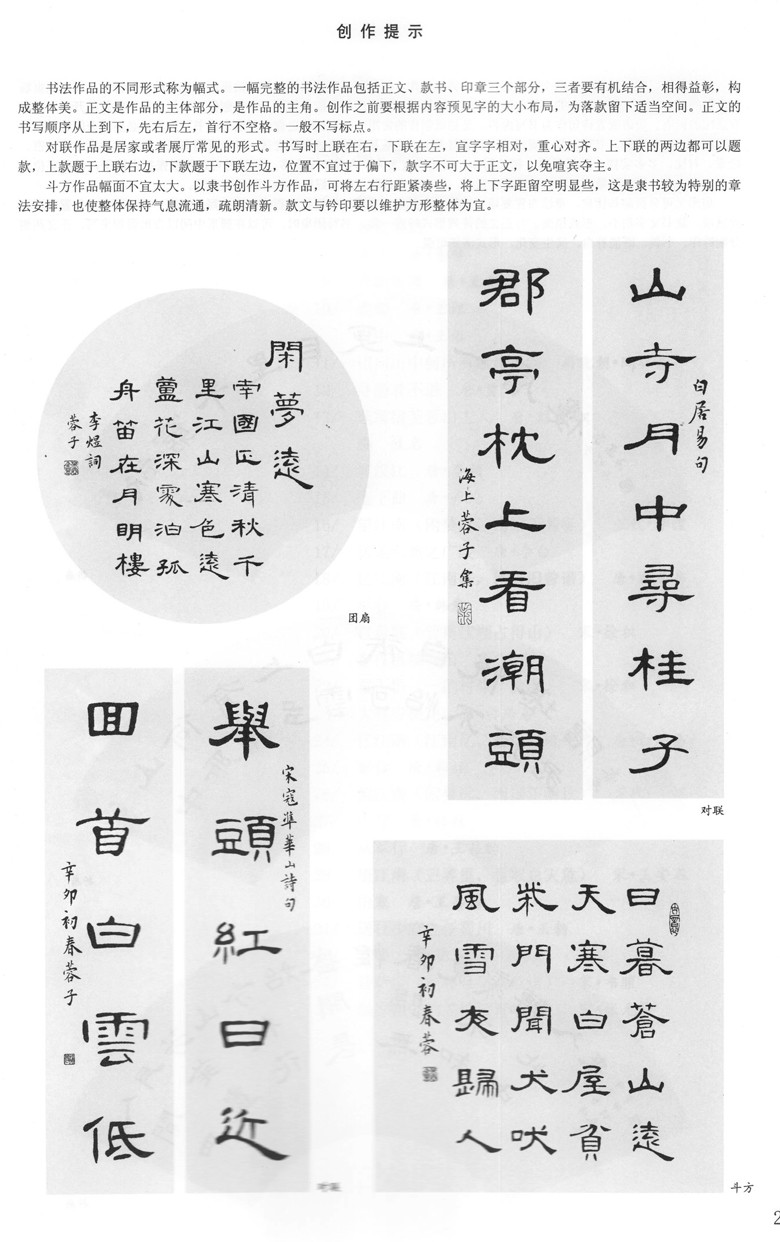 创作提示
书法作品的不同形式称为幅式。一幅完整的书法作品包括正文、款书、印章三个部分，三者要有机结合，相得益彰，构
成整体美。正文是作品的主体部分，是作品的主角。创作之前要根据内容预见字的大小布局，为落款留下适当空间。正文的
书写顺序从上到下，先右后左，首行不空格。一般不写标点。
对联作品是居家或者展厅常见的形式。书写时上联在右，下联在左，宜字字相对，重心对齐。上下联的两边都可以题
款，上款题于上联右边，下款题于下联左边，位置不宜过于偏下，款字不可大于正文，以免喧宾夺主。
斗方作品幅面不宜太大。以隶书创作斗方作品，可将左右行距紧凑些，将上下字距留空明显些，这是隶书较为特别的章
法安排，也使整体保持气息流通，疏朗清新。款文与钤印要以维护方形整体为宜。
閑夢遠
南國正清秋千
里江山寒色遠
蘆花深處泊孤
舟笛在月明樓
李煜詞
蓉子
团扇
白居易句
山寺月中尋桂子
郡亭枕上看潮頭
海上蓉子集
对联
舉頭紅日近
宋寇準華山詩句
回首白雲低
辛卯初春蓉子
对联
日暮蒼山遠
天寒白屋貧
柴門聞犬吠
風雪夜歸人
辛卯初春蓉
斗方
2